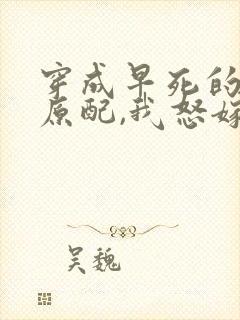 穿成早死的
原配,我怒嫁
吴魏